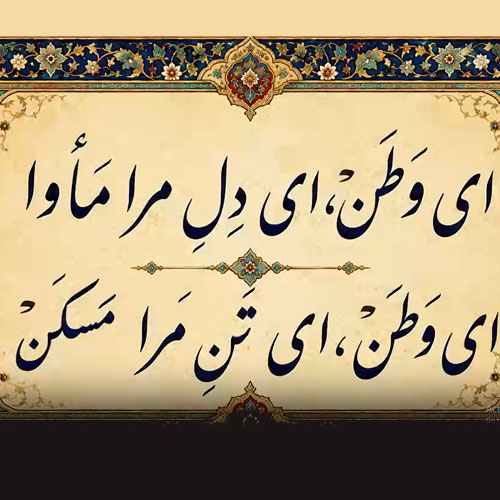 ای وَطَنْ، ای دِلِ مرا مَأوا
ای وَطَنْ، ای تَنِ مَرا مَسکَنْ